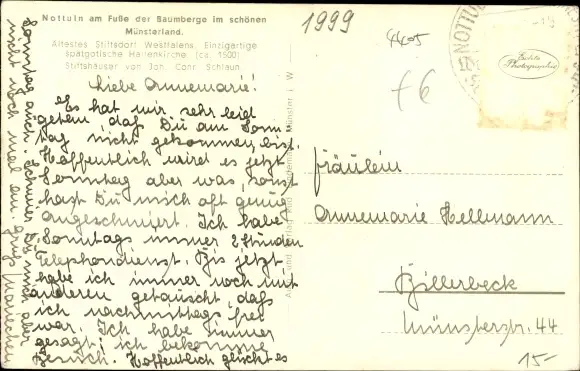 Nottuln am Fuße der Baumberge im schönen
Münsterland.
Ältestes Stiftsdorf Westfalens. Einzigartige
spätgotische Hallenkirche (ca. 1500)
Stiftshäuser von Joh. Conr. Schlaun.
Liebe Annemarie!
Es hat mir sehr leid
getan daß Du am Sonn
tag nicht gekommen bist.
Hoffentlich wird es jetzt
Sonntag aber was, sonst
hast Du mich oft genug
angeschmiert. Ich habe
Sonntags immer 2 Stunden
Telephondienst. Bis jetzt
habe ich immer noch mit
anderen getauscht, daß
ich nachmittags frei
war. Ich habe immer
gesagt; ich bekomme
Besuch. Hoffentlich glückt es
Sonntag auch. Schmier Du mich aber
nicht noch mal an. Gruß
1999
4405
f6
NOTTUL
Echte
Photographie
Münster i W
Fräulein
Annemarie Hellmann
Billerbeck
Münsterstr. 44
15-